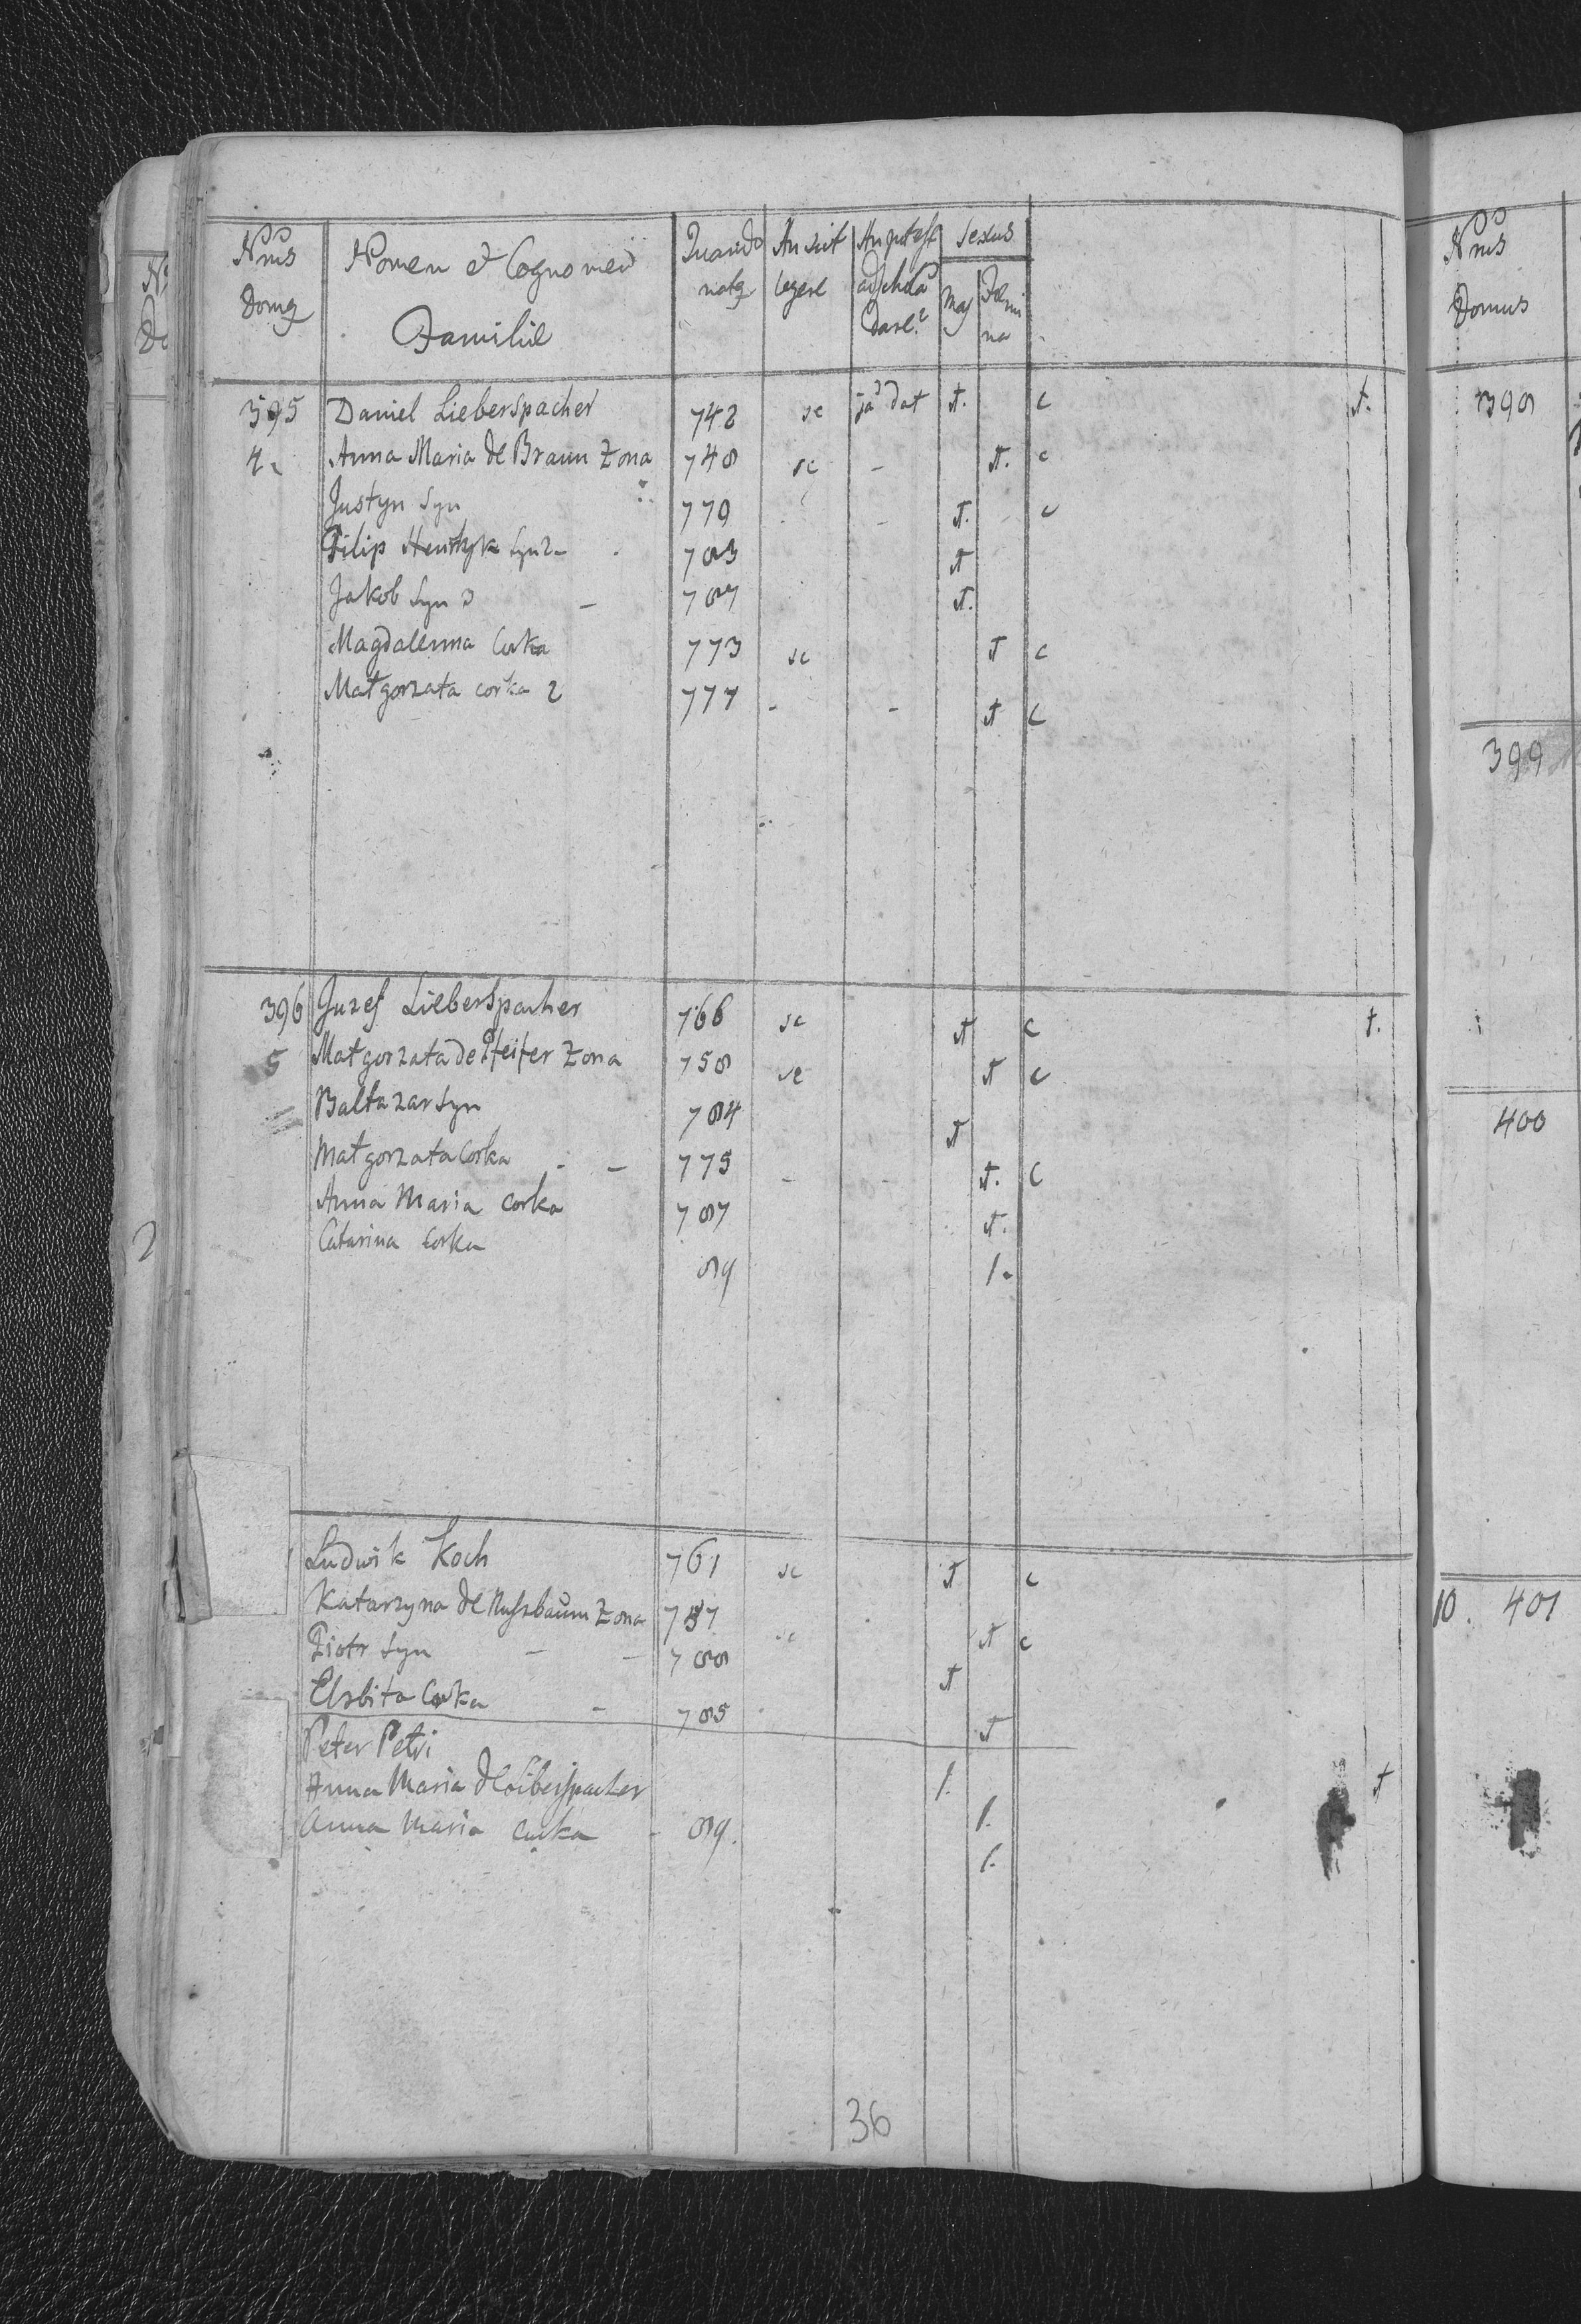 Nrus Domq Nomen et Cognomen Familiæ Quando natq An scit legere An potest ad scholã dare? Sexus Mas Femina
395 Daniel Lieberspacher 742 sc jã dat 1. c 1.
4 Anna Maria de Braun Zona 748 sc - 1. c
Justyn Syn 779 - 1. c
Filip Henryk Syn 2 - 783 1
Jakob Syn 3 - 787 1.
Magdalenna Corka 773 sc 1 c
Małgorzata corka 2 777 - - 1 c
396 Juzef Lieberspacher 766 sc 1 c 1.
5 Małgorzata de Pfeifer Zona 758 sc 1 c
Baltazar Syn 784 1
Małgorzata Corka - - 775 - - 1. c
Anna Maria corka 787 1.
Catarina Corka 89 1.
Ludwik Koch 761 sc 1 c
Katarzyna de Nuszbaum Zona 757 sc 1 c
Piotr Syn - - 788 1
Elzbita Corka - 785 1
Peter Petri 1.
Anna Maria de Liberspacher 1.
Anna Maria curka - 89. 1.
36
Nrus
Domus
398
399
400
10. 401